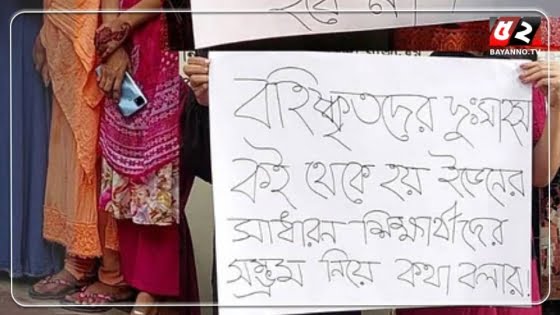 হবে না।
৫২
BAYANNO.TV
বহিষ্কৃতদের দুঃসাহস
কই থেকে হয় ইডেনের
সাধারন শিক্ষার্থীদের
সম্ভ্রম নিয়ে কথা বলার!